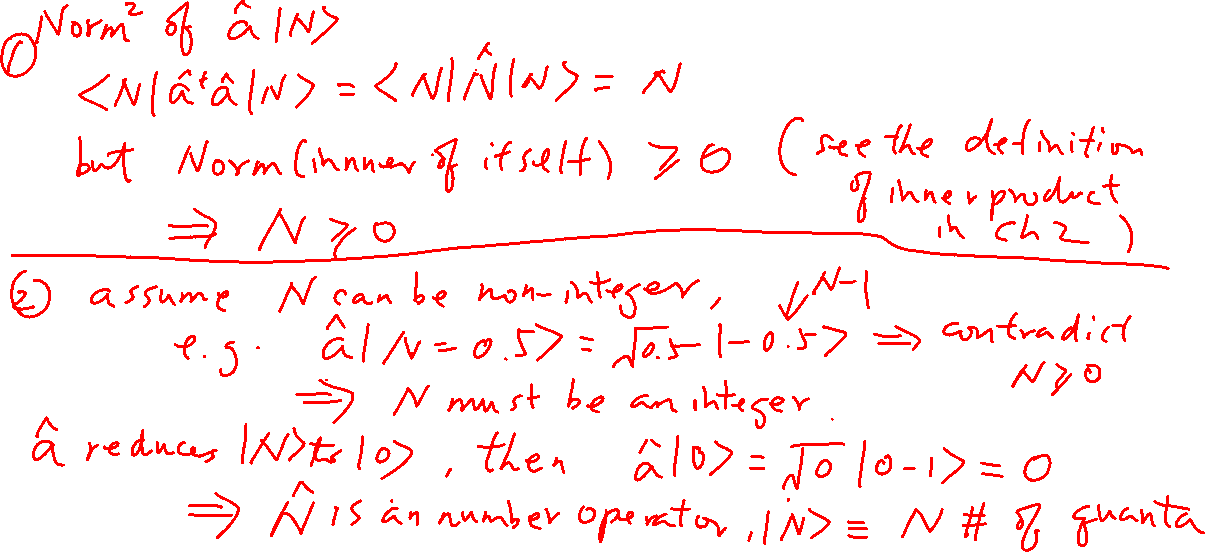 ① Norm² of â|N>
<N|â†â|N> = <N|N̂|N> = N
but Norm(innner of itself) ⩾ 0 (see the definition
of inner product
in ch 2)
⇒ N ⩾ 0
② assume N can be non-integer,
N-1
e.g. â|N=0.5> = √0.5 |-0.5> ⇒ contradict
N⩾0
⇒ N must be an integer.
â reduces |N> to |0>, then â|0> = √0 |0-1> = 0
⇒ N̂ is an number operator, |N> ≡ N # of quanta